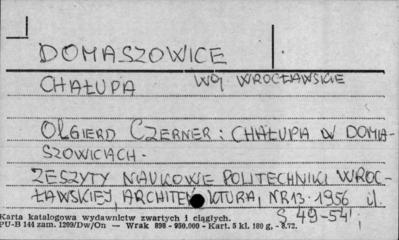 DOMASZOWICE
CHAŁUPA WOJ WROCŁAWSKIE
OLGIERD CZERNER: CHAŁUPA W DOMA-
SZOWICACH.
ZESZYTY NAUKOWE POLITECHNIKI WROC-
ŁAWSKIEJ, ARCHITEKTURA, NR 13. 1956 il.
S 49-54
Karta katalogowa wydawnictw zwartych i ciągłych.
PU-B 144 zam. 1209/Dw/On — Wrak 898 - 950.000 - Kart. 5 kl. 180 g. - 8.72.